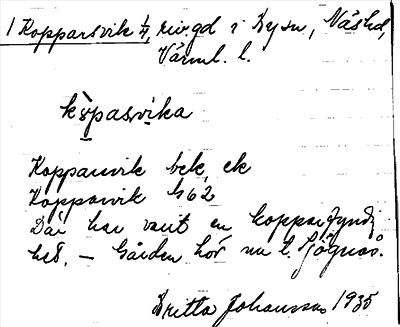 1 Kopparsvik 1/4, in Bysn, Näshd,
Värml. l.
kòpasvika
Koppaisvik bek. ek
Koppsvik 1762
Där har varit en kopparfyndig
het. – Gården hör nu t. Sjögnäs.
Britta Johansson 1935